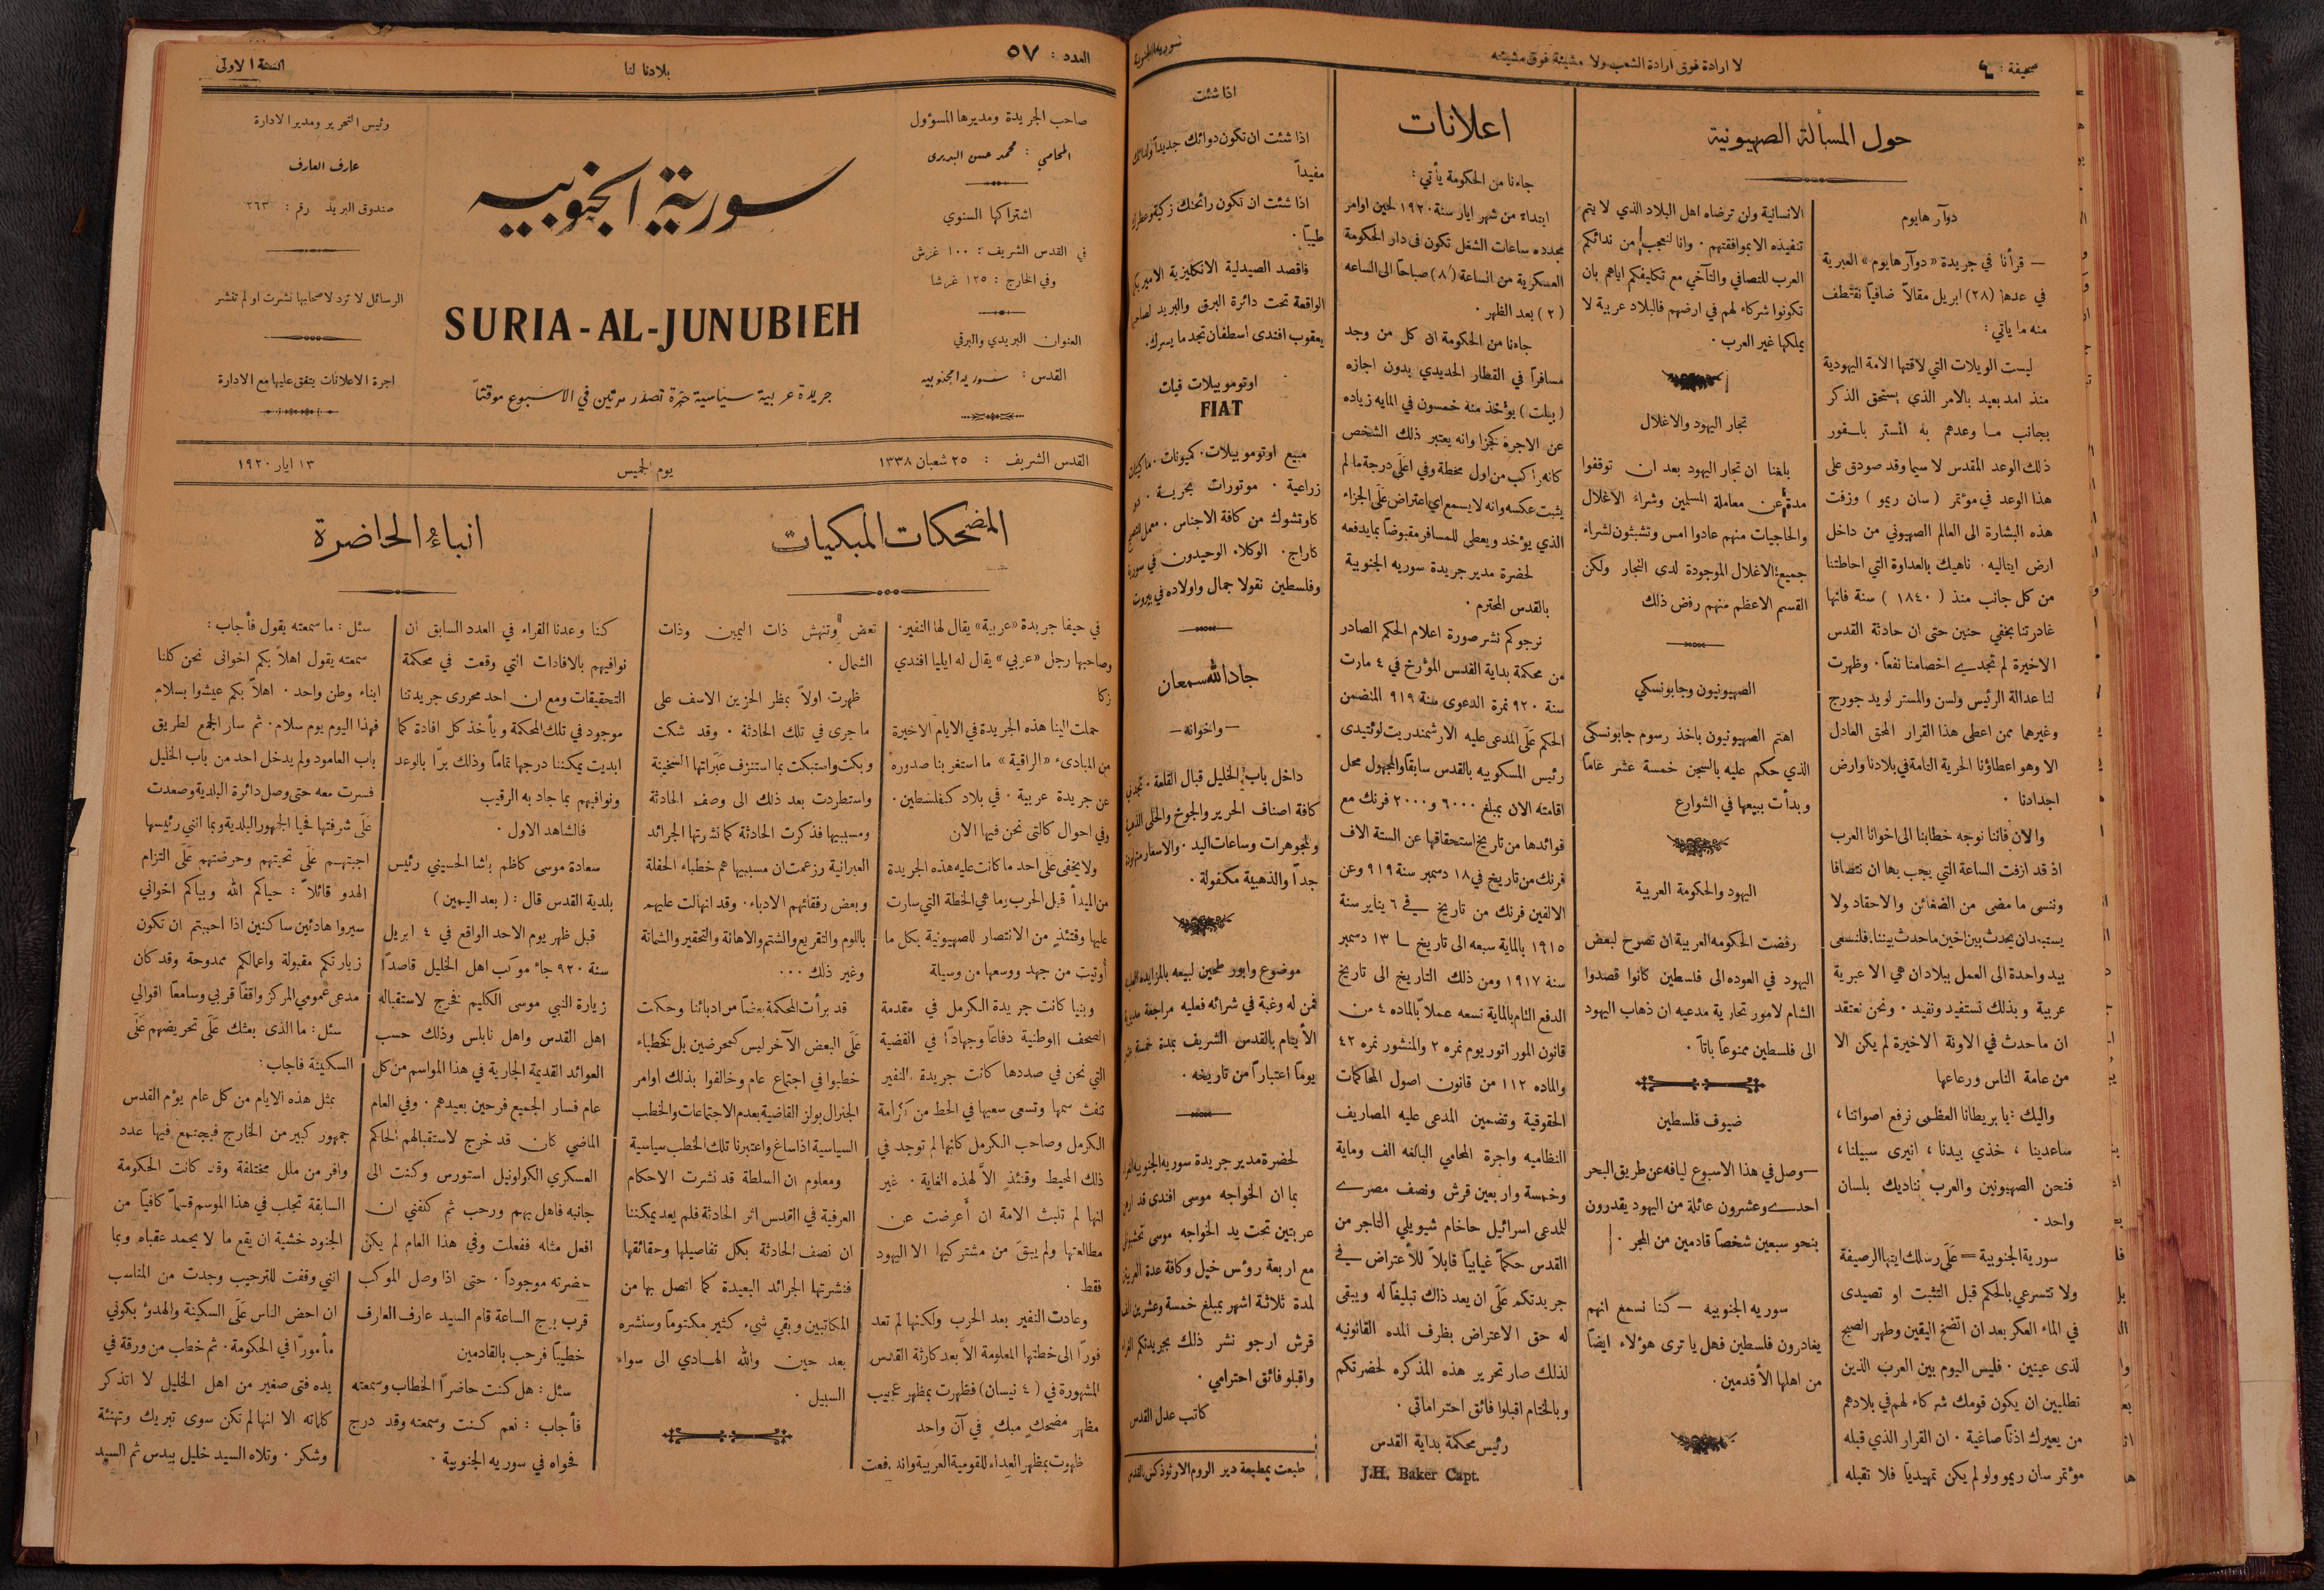 صحيفة : ٤
لا ارادة فوق ارادة الشعب ولا مشيئة فوق مشيئته
سورية الجنوبية
حول المسألة الصهيونية
دوآر هايوم
— قرأنا في جريدة «دوآر هايوم» العبرية
في عددها (٢٨) ابريل مقالاً ضافياً نقتطف
منه ما ياتي :
ليست الويلات التي لاقتها الامة اليهودية
منذ امد بعيد بالامر الذي يستحق الذكر
بجانب ما وعدهم به المستر بالفور
ذلك الوعد المقدس لا سيما وقد صودق على
هذا الوعد في مؤتمر (سان ريمو) وزفت
هذه البشارة الى العالم الصهيوني من داخل
ارض ايتاليه . ناهيك بالعداوة التي احاطتنا
من كل جانب منذ (١٨٤٠) سنة فانها
غادرتنا بخفي حنين حتى ان حادثة القدس
الاخيرة لم تجدي اخصامنا نفعاً . وظهرت
لنا عدالة الرئيس ولسن والمستر لويد جورج
وغيرها ممن اعطى هذا القرار المحق العادل
الا وهو اعطاؤنا الحرية التامة في بلادنا وارض
اجدادنا .
والان فاننا نوجه خطابنا الى اخوانا العرب
اذ قد ازفت الساعة التي يجب بها ان نتصافا
وننسى ما مضى من الضغائن والاحقاد ولا
يستبعد ان يحدث بين اخين ما حدث بيننا . فلنسعى
بيد واحدة الى العمل ببلاد ان هي الا عبرية
عربية وبذلك نستفيد ونفيد . ونحن نعتقد
ان ما حدث في الاونة الاخيرة لم يكن الا
من عامة الناس ورعاعها
واليك : يا بريطانا العظمى نرفع اصواتنا ،
ساعدينا ، خذي بيدنا ، انيري سبيلنا ،
فنحن الصهيونين والعرب نناديك بلسان
واحد .
سورية الجنوبية = على رسلك ايتها الرصيفة
ولا تتسرعي بالحكم قبل التثبت او تصيدى
في الماء العكر بعد ان اتضح اليقين وظهر الصبح
لذى عينين . فليس اليوم بين العرب الذين
تطلبين ان يكون قومك شركاء لهم في بلادهم
من يعيرك اذناً صاغية . ان القرار الذي قبله
مؤتمر سان ريمو ولو لم يكن تمهيدياً فلا تقبله
الانسانية ولن ترضاه اهل البلاد الذي لا يتم
تنفيذه الا بموافقتهم . وانا لنعجب من ندائكم
العرب للتصافي والتآخي مع تكليفكم اياهم بان
تكونوا شركاء لهم في ارضهم فالبلاد عربية لا
يملكها غير العرب .
تجار اليهود والاغلال
بلغنا ان تجار اليهود بعد ان توقفوا
مدة عن معاملة المسلمين وشراء الاغلال
والحاجيات منهم عادوا امس وتشبثون لشراء
جميع الاغلال الموجودة لدى التجار ولكن
القسم الاعظم منهم رفض ذلك
الصهيونيون وجابونسكي
اهتم الصهيونيون باخذ رسوم جابونسكى
الذي حكم عليه بالسجن خمسة عشر عاماً
وبدأت ببيعها في الشوارع
اليهود والحكومة العربية
رفضت الحكومه العربية ان تصرح لبعض
اليهود في العوده الى فلسطين كانوا قصدوا
الشام لامور تجارية مدعيه ان ذهاب اليهود
الى فلسطين ممنوعاً باتاً .
ضيوف فلسطين
— وصل في هذا الاسبوع ليافه عن طريق البحر
احدى وعشرون عائلة من اليهود يقدرون
بنحو سبعين شخصاً قادمين من المجر .
سوريه الجنوبيه — كنا نسمع انهم
يغادرون فلسطين فهل يا ترى هؤلاء ايضاً
من اهلها الأقدمين .
اعلانات
جاءنا من الحكومة يأتي :
ابتداء من شهر ايار سنة ١٩٢٠ لحين اوامر
مجدده ساعات الشغل تكون فى دار الحكومة
العسكرية من الساعة (٨) صباحاً الى الساعه
(٢) بعد الظهر .
جاءنا من الحكومة ان كل من وجد
مسافراً في القطار الحديدي بدون اجازه
(بيلت) يؤخذ منه خمسون في المايه زياده
عن الاجرة كجزا وانه يعتبر ذلك الشخص
كانه راكب من اول محطة وفي اعلى درجة ما لم
يثبت عكسه وانه لا يسمع اي اعتراض على الجزاء
الذي يؤخد ويعطى للمسافر مقبوضاً بما يدفعه
لحضرة مدير جريدة سوريه الجنوبية
بالقدس المحترم .
نرجوكم نشر صورة اعلام الحكم الصادر
من محكمة بداية القدس المؤرخ في ٤ مارت
سنة ٩٢٠ نمرة الدعوى سنة ٩١٩ المتضمن
الحكم على المدعى عليه الارشمندريت لوئنيدى
رئيس المسكوبيه بالقدس سابقاً والمجهول محل
اقامته الان بمبلغ ٦٠٠٠ و ٢٠٠٠ فرنك مع
فوائدها من تاريخ استحقاقها عن الستة الاف
فرنك من تاريخ في ١٨ دسمبر سنة ٩١٩ وعن
الالفين فرنك من تاريخ في ٦ يناير سنة
١٩١٥ بالماية سبعه الى تاريخ ١٣ دسمبر
سنة ١٩١٧ ومن ذلك التاريخ الى تاريخ
الدفع التام بالماية تسعه عملاً بالماده ٤ من
قانون المور اتوريوم نمره ٢ والمنشور نمره ٤٢
والماده ١١٢ من قانون اصول المحاكمات
الحقوقية وتضمين المدعى عليه المصاريف
النظاميه واجرة المحامي البالغه الف وماية
وخمسة واربعين قرش ونصف مصرى
للمدعى اسرائيل حاخام شيويلي التاجر من
القدس حكماً غيابياً قابلاً للأعتراض في
جريدتكم على ان يعد ذاك تبليغاً له ويبقى
له حق الاعتراض بظرف المده القانونيه
لذلك صار تحرير هذه المذكره لحضرتكم
وبالختام اقبلوا فائق احتراماتى .
رئيس محكمة بداية القدس
J.H. Baker Capt.
اذا شئت
اذا شئت ان تكون دوائك جديداً
مفيداً
اذا شئت ان تكون رائحتك زكية وعطرك
طيباً .
فاقصد الصيدلية الانكليزية الاميركية
الواقعة تحت دائرة البرق والبريد لصاحبها
يعقوب افندى اسطفان تجد ما يسرك .
اوتوموبيلات فيات
FIAT
مبيع اوتوموبيلات . كميونات .
زراعية . موتورات بحرية .
كاوتشوك من كافة الاجناس .
كاراج . الوكلاء الوحيدون في سورية
وفلسطين نقولا جمال واولاده في بيروت
جاد الله سمعان
— واخوانه —
داخل باب الخليل قبال القلعة .
كافة اصناف الحرير والجوخ والحلى الذهبية
والمجوهرات وساعات اليد . والاسعار
جداً والذهبية مكفولة .
موضوع وابور طحين لبيعه بالمزايده
فمن له رغبة في شرائه فعليه مراجعة مديرية
الأيتام بالقدس الشريف بمدة خمسة عشر
يوماً اعتباراً من تاريخه .
لحضرة مدير جريدة سوريه الجنوبيه
بما ان الخواجه موسى افندى قد
عربتين تحت يد الخواجه موسى
مع اربعة رؤس خيل وكافة عدة
لمدة ثلاثة اشهر بمبلغ خمسة وعشرين الف
قرش ارجو نشر ذلك بجريدتكم الغراء
واقبلو فائق احترامي .
كاتب عدل القدس
طبعت بمطبعة دير الروم الارثوذكس بالقدس
العدد : ٥٧
بلادنا لنا
السنة الاولى
صاحب الجريدة ومديرها المسؤول
المحامي : محمد حسن البديرى
اشتراكها السنوي
في القدس الشريف : ١٠٠ غرش
وفي الخارج : ١٢٥ غرشا
العنوان البريدي والبرقي
القدس : سوريه الجنوبيه
سورية الجنوبيه
SURIA-AL-JUNUBIEH
جريدة عربية سياسية حرة تصدر مرتين في الاسبوع موقتاً
رئيس التحرير ومدير الادارة
عارف العارف
صندوق البريد رقم : ٢٦٣
الرسائل لا ترد لاصحابها نشرت او لم تنشر
اجرة الاعلانات يتفق عليها مع الادارة
القدس الشريف : ٢٥ شعبان ١٣٣٨
يوم الخميس
١٣ ايار ١٩٢٠
المضحكات المبكيات
في حيفا جريدة «عربية» يقال لها النفير .
وصاحبها رجل «عربي» يقال له ايليا افندي
زكا
حملت الينا هذه الجريدة في الايام الاخيرة
من المبادىء «الراقية» ما استغربنا صدوره
عن جريدة عربية . في بلاد كفلسطين .
وفي احوال كالتى نحن فيها الان
ولا يخفى على احد ما كانت عليه هذه الجريدة
من المبدأ قبل الحرب وما هي الخطة التي سارت
عليها وقتئذٍ من الانتصار للصهيونية بكل ما
أوتيت من جهد ووسعها من وسيلة
وبنيا كانت جريدة الكرمل في مقدمة
الصحف الوطنية دفاعاً وجهاداً في القضية
التي نحن في صددها كانت جريدة النفير
تنفث سمها وتسعى سعيها في الحط من كرامة
الكرمل وصاحب الكرمل كانها لم توجد في
ذلك المحيط وقتئذٍ الاَّ لهذه الغاية . غير
انها لم تلبث الامة ان أعرضت عن
مطالعتها ولم يبقَ من مشتركيها الا اليهود
فقط .
وعادت النفير بعد الحرب ولكنها لم تعد
فوراً الى خطتها المعلومة الاَّ بعد كارثة القدس
المشهورة في (٤ نيسان) فظهرت بمظهر عجيب
مظهر مضحكٍ مبكٍ في آن واحد
ظهرت بمظهر العداء للقومية العربية واندفعت
تعض وتنهش ذات اليمين وذات
الشمال .
ظهرت اولاً بمظر الحزين الاسف على
ما جرى في تلك الحادثة . وقد شكت
وبكت واستبكت بما استنزف عَبَراتها السخينة
واستطردت بعد ذلك الى وصف الحادثة
ومسببيها فذكرت الحادثة كما نشرتها الجرائد
العبرانية وزعمت ان مسببيها هم خطباء الحفلة
وبعض رفقائهم الادباء . وقد انهالت عليهم
باللوم والتقريع والشتم والاهانة والتحقير والشماتة
وغير ذلك ...
قد برأت المحكمة بعضاً من ادبائنا وحكمت
على البعض الآخر ليس كمحرضين بل كخطباء
خطبوا في اجتماع عام وخالفوا بذلك اوامر
الجنرال بولز القاضية بعدم الاجتماعات والخطب
السياسية اذا ساغ واعتبرنا تلك الخطب سياسية
ومعلوم ان السلطة قد نشرت الاحكام
العرفية في القدس اثر الحادثة فلم يعد يمكننا
ان نصف الحادثة بكل تفاصيلها وحقائقها
فنشرتها الجرائد البعيدة كما اتصل بها من
المكاتبين وبقي شيء كثير مكتوماً وسننشره
بعد حين والله الهادي الى سواء
السبيل .
انباءُ الحاضرة
كنا وعدنا القراء في العدد السابق ان
نوافيهم بالافادات التي وقعت في محكمة
التحقيقات ومع ان احد محررى جريدتنا
موجود في تلك المحكمة ويأخذ كل افادة كما
ابديت يمكننا درجها تماماً وذلك برّاً بالوعد
ونوافيهم بما جاد به الرقيب
فالشاهد الاول .
سعادة موسى كاظم باشا الحسيني رئيس
بلدية القدس قال : (بعد اليمين)
قبل ظهر يوم الاحد الواقع في ٤ ابريل
سنة ٩٢٠ جاء موكب اهل الخليل قاصداً
زيارة النبي موسى الكليم فخرج لاستقباله
اهل القدس واهل نابلس وذلك حسب
العوائد القديمة الجارية في هذا المواسم من كل
عام فسار الجميع فرحين بعيدهم . وفي العام
الماضي كان قد خرج لاستقبالهم الحاكم
العسكري الكولونيل استورس وكنت الى
جانبه فاهل بهم ورحب ثم كلفني ان
افعل مثله ففعلت وفي هذا العام لم يكن
حضرته موجوداً . حتى اذا وصل الموكب
قرب برج الساعة قام السيد عارف العارف
خطيباً فرحب بالقادمين
سئل : هل كنت حاضراً الخطاب وسمعته
فأجاب : نعم كنت وسمعته وقد درج
فحواه في سوريه الجنوبية .
سئل : ما سمعته يقول فأجاب :
سمعته يقول اهلاً بكم اخوانى نحن كلنا
ابناء وطن واحد . اهلاً بكم عيشوا بسلام
فهذا اليوم يوم سلام . ثم سار الجمع لطريق
باب العامود ولم يدخل احد من باب الخليل
فسرت معه حتى وصل دائرة البلدية وصعدت
على شرفتها فحيا الجمهور البلدية وبما انني رئيسها
اجبتهم على تحيتهم وحرضتهم على التزام
الهدو قائلاً : حياكم الله وبياكم اخواني
سيروا هادئين ساكنين اذا احببتم ان تكون
زيارتكم مقبولة واعمالكم ممدوحة وقد كان
مدعى عمومي المركز واقفاً قربي وسامعاً اقوالي
سئل : ما الذى بعثك على تحريضهم على
السكينة فاجاب :
بمثل هذه الايام من كل عام يؤم القدس
جمهور كبير من الخارج فيجتمع فيها عدد
وافر من ملل مختلفة وقد كانت الحكومة
السابقة تجلب في هذا الموسم قسماً كافياً من
الجنود خشية ان يقع ما لا يحمد عقباه وبما
انني وقفت للترحيب وجدت من المناسب
ان احض الناس على السكينة والهدوُ بكوني
مأموراً في الحكومة . ثم خطب من ورقة في
يده فتى صغير من اهل الخليل لا اتذكر
كلماته الا انها لم تكن سوى تبريك وتهنئة
وشكر . وتلاه السيد خليل بيدس ثم السيد